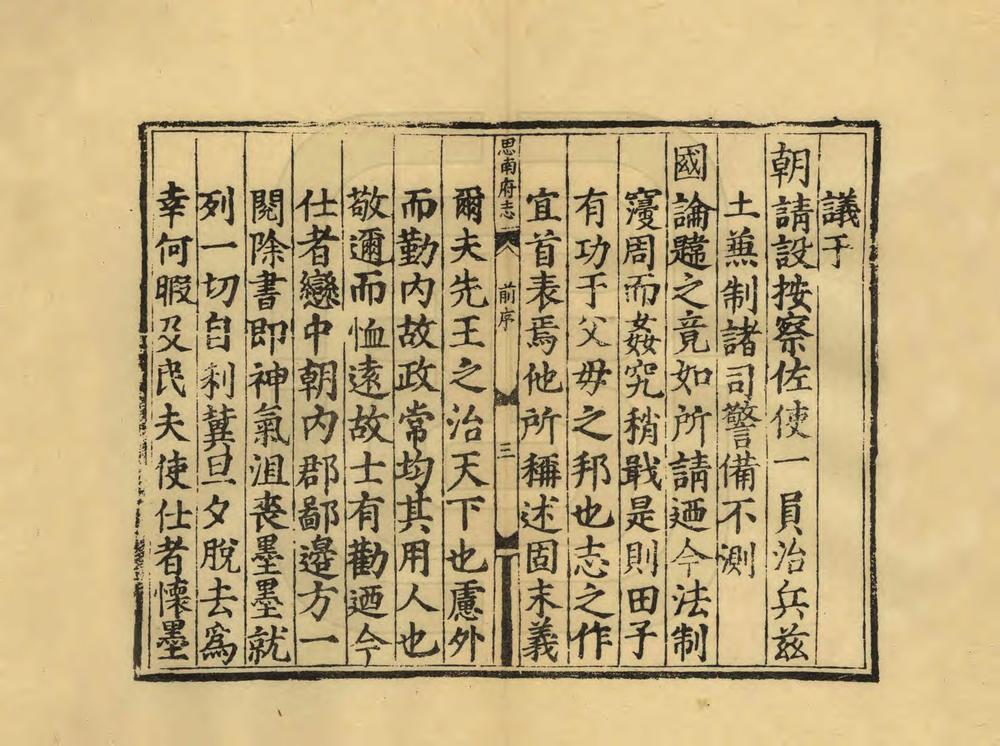 議于
朝請設按察佐使一員治兵玆
土兼制諸司警備不測
國論韙之竟如所請迺今法制
寖周而姦宄稍戢是則田子
有功于父母之邦也志之作
宜首表焉他所稱述固末義
思南府志 前序 三
爾夫先王之治天下也慮外
而勤內故政常均其用人也
敬邇而恤遠故士有勸迺今
仕者戀中朝內郡鄙邊方一
閱除書即神氣沮喪墨墨就
列一切自利冀旦夕脫去爲
幸何暇及民夫使仕者懷墨